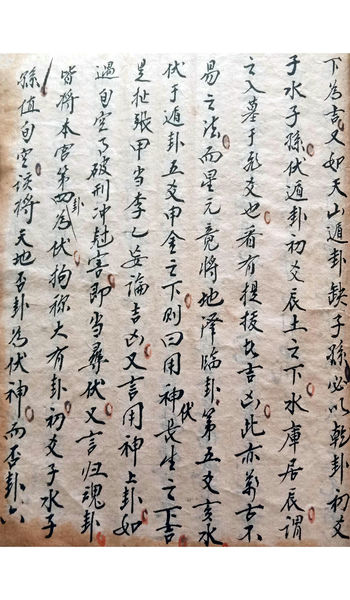 下為吉又如天山遁卦缺子孫必以乾卦初爻
子水子孫伏遁卦初爻辰土之下水庫居辰謂
之入墓于飛爻也若有提拔吉凶此亦萬古不
易之法而星元竟將地澤臨卦第五爻亥水
伏于遁卦五爻申金之下則曰用神伏長生之下吉
是扯張甲當李乙妄論吉凶又言用神上卦如
遇旬空月破刑冲尅害即當尋伏又言归魂卦
皆將本宮第四卦為伏大有卦初爻子水子
孫值旬空误將天地否卦為伏神而否卦六